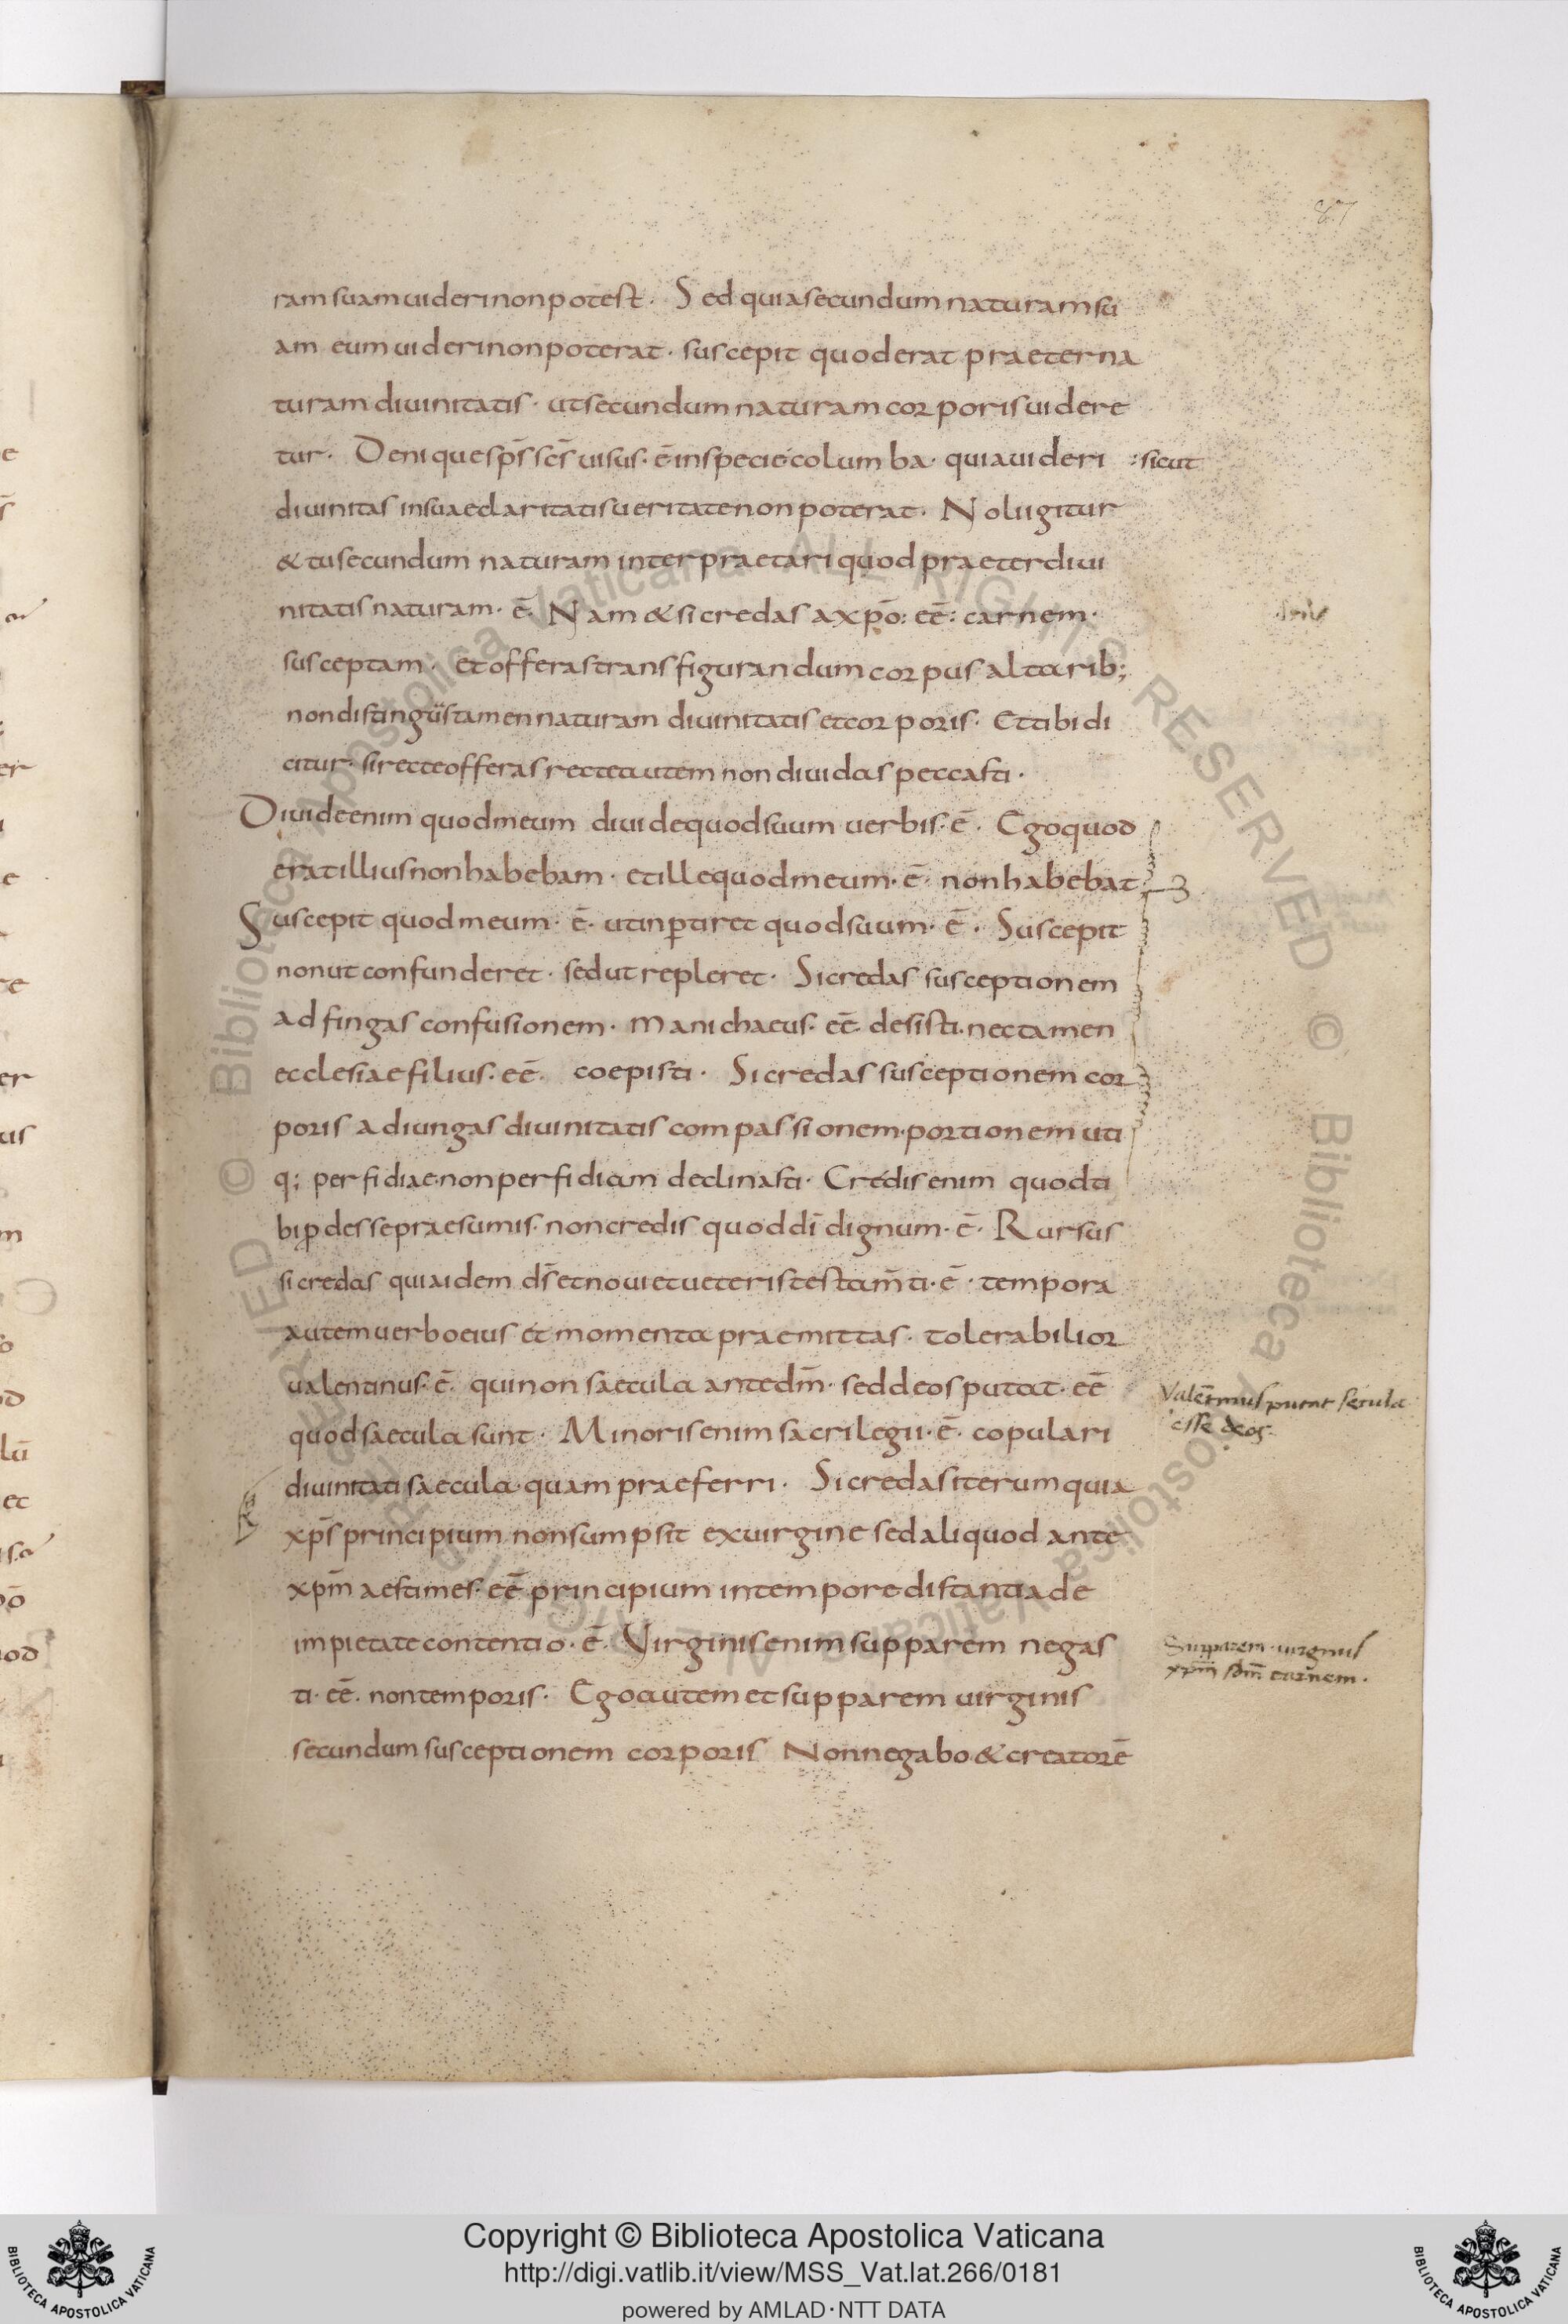 87
ram suam uideri non potest. Sed quia secundum naturam su
am eum uideri non poterat. suscepit quod erat praeter na
turam diuinitatis. ut secundum naturam corporis uidere
tur. Denique sp̄s sc̄s uisus. ē. in specie columba. quia uideri :sicut
diuinitas in suae claritatis ueritate non poterat. Noli igitur
& tu secundum naturam interpraetari quod praeter diui
nitatis naturam. ē. Nam & si credas a xp̄o: eē: carnem.
susceptam. et offeras transfigurandum corpus altarib;
non distinguis tamen naturam diuinitatis et corporis. Et tibi di
citur. si recte offeras recte autem non diuidas peccasti.
Diuide enim quod meum diuide quod suum uerbis. ē. Ego quod
erat illius non habebam. et ille quod meum. ē. non habebat
Suscepit quod meum. ē. ut inꝑtiret quod suum. ē. Suscepit
non ut confunderet. sed ut repleret. Si credas susceptionem
adfingas confusionem. manichaeus. eē. desisti. nec tamen
ecclesiae filius. eē. coepisti. Si credas susceptionem cor
poris adiungas diuinitatis compassionem. portionem uti
q; perfidiae. non perfidiam declinasti. Credis enim quod ti
bi ꝓdesse praesumis. non credis quod dī dignum. ē. Rursus
si credas quia idem ds̄ et noui et ueteris testam̄ti. ē. tempora
autem uerbo eius et momenta praemittas. tolerabilior
ualentinus. ē. qui non saecula ante dm̄. sed deos putat. eē
quod saecula sunt. Minoris enim sacrilegii. ē. copulari
Valētinus putat secula
esse deos.
diuinitati saecula. quam praeferri. Si credas iterum quia
xp̄s principium non sumpsit ex uirgine sed aliquod ante
xp̄m aestimes. eē principium in tempore distantia de
impietate contentio. ē. Virginis enim supparem negas
ti. eē. non temporis. Ego autem et supparem uirginis
Supparem uirginis
xp̄m sdm̄ carnem.
secundum susceptionem corporis Non negabo. & creatorē
© Biblioteca Apostolica Vaticana ALL RIGHTS RESERVED
Copyright © Biblioteca Apostolica Vaticana
http://digi.vatlib.it/view/MSS_Vat.lat.266/0181
powered by AMLAD·NTT DATA
BIBLIOTECA APOSTOLICA VATICANA
BIBLIOTECA APOSTOLICA VATICANA